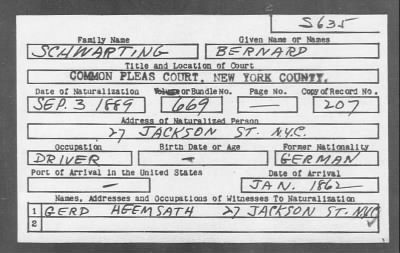 S635
Family Name Given Name or Names
SCHWARTING BERNARD
Title and Location of Court
COMMON PLEAS COURT, NEW YORK COUNTY.
Date of Naturalization Volume or Bundle No. Page No. Copy of Record No.
SEP. 3 1889 669 — 207
Address of Naturalized Person
27 JACKSON ST. N.Y.C.
Occupation Birth Date or Age Former Nationality
DRIVER — GERMAN
Port of Arrival in the United States Date of Arrival
— JAN. 1862
Names, Addresses and Occupations of Witnesses To Naturalization
1 GERD HEEMSATH 27 JACKSON ST. NYC
2